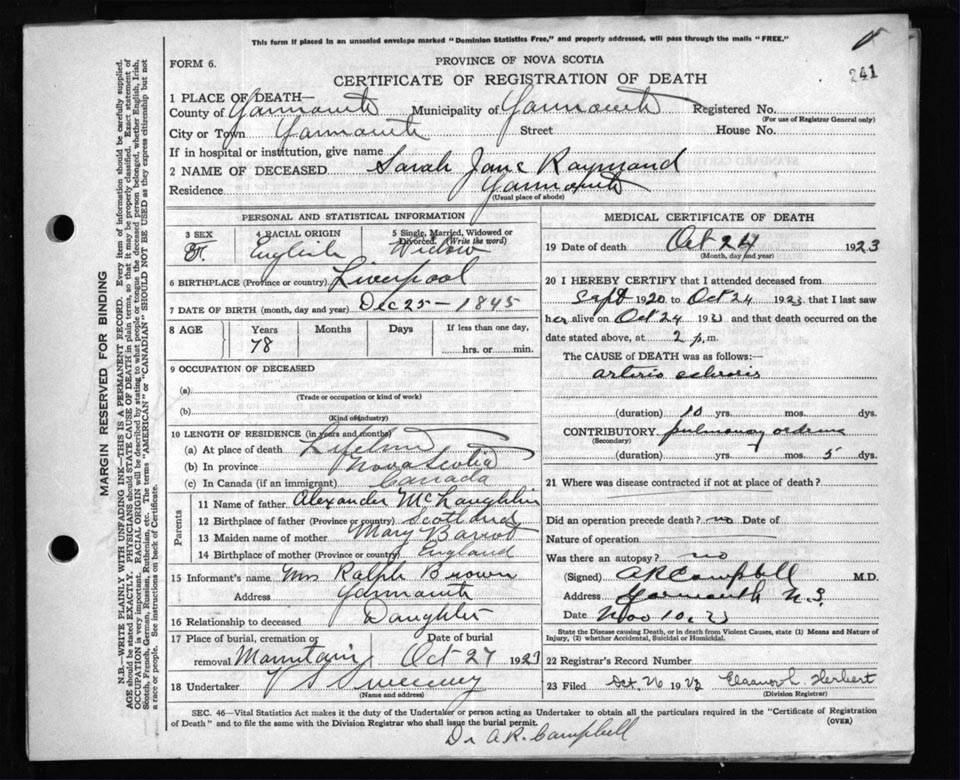 This form if placed in an unsealed envelope marked "Dominion Statistics Free," and properly addressed, will pass through the mails "FREE."
FORM 6.
PROVINCE OF NOVA SCOTIA
241
CERTIFICATE OF REGISTRATION OF DEATH
1 PLACE OF DEATH—
County of Yarmouth Municipality of Yarmouth Registered No.
(For use of Registrar General only)
City or Town Yarmouth Street House No.
If in hospital or institution, give name
2 NAME OF DECEASED Sarah Jane Raymond
Residence Yarmouth
(Usual place of abode)
PERSONAL AND STATISTICAL INFORMATION
3 SEX 4 RACIAL ORIGIN 5 Single, Married, Widowed or Divorced. (Write the word)
F. English Widow
6 BIRTHPLACE (Province or country) Liverpool
7 DATE OF BIRTH (month, day and year) Dec 25 - 1845
8 AGE Years Months Days If less than one day,
78 hrs. or min.
9 OCCUPATION OF DECEASED
(a)
(Trade or occupation or kind of work)
(b)
(Kind of industry)
10 LENGTH OF RESIDENCE (in years and months)
(a) At place of death Lifetime
(b) In province Nova Scotia
(c) In Canada (if an immigrant) Canada
Parents
11 Name of father Alexander McLaughlin
12 Birthplace of father (Province or country) Scotland
13 Maiden name of mother Mary
14 Birthplace of mother (Province or country) England
15 Informant's name Mrs Ralph Brown
Address Yarmouth
16 Relationship to deceased Daughter
17 Place of burial, cremation or removal Mountain Date of burial Oct 27 1923
18 Undertaker V S Sweeney
(Name and address)
MEDICAL CERTIFICATE OF DEATH
19 Date of death Oct 24 1923
(Month, day and year)
20 I HEREBY CERTIFY that I attended deceased from
Sept 1920 to Oct 24 1923 that I last saw
her alive on Oct 24 1923 and that death occurred on the
date stated above, at 2 p.m.
The CAUSE OF DEATH was as follows:—
arterio sclerosis
(duration) 10 yrs. mos. dys.
CONTRIBUTORY pulmonary oedema
(Secondary)
(duration) yrs. mos. 5 dys.
21 Where was disease contracted if not at place of death?
Did an operation precede death? no Date of
Nature of operation
Was there an autopsy? no
(Signed) A R Campbell M.D.
Address Yarmouth N.S.
Date Nov 10. 23
State the Disease causing Death, or in death from Violent Causes, state (1) Means and Nature of Injury, (2) whether Accidental, Suicidal or Homicidal.
22 Registrar's Record Number
23 Filed Oct. 26 1923 Eleanor L. Herbert
(Division Registrar)
SEC. 46—Vital Statistics Act makes it the duty of the Undertaker or person acting as Undertaker to obtain all the particulars required in the "Certificate of Registration
of Death" and to file the same with the Division Registrar who shall issue the burial permit. (OVER)
Dr A.R. Campbell
MARGIN RESERVED FOR BINDING
N.B.—WRITE PLAINLY WITH UNFADING INK—THIS IS A PERMANENT RECORD. Every item of information should be carefully supplied.
AGE should be stated EXACTLY. PHYSICIANS should STATE CAUSE OF DEATH in plain terms, so that it may be properly classified. Exact statement of
OCCUPATION is very important. RACIAL ORIGIN will be described by stating to what people or tongue the deceased person belonged, whether English, Irish,
Scotch, French, German, Russian, Ruthenian, etc. The terms "AMERICAN" or "CANADIAN" SHOULD NOT BE USED as they express citizenship but not
a race or people. See instructions on back of Certificate.